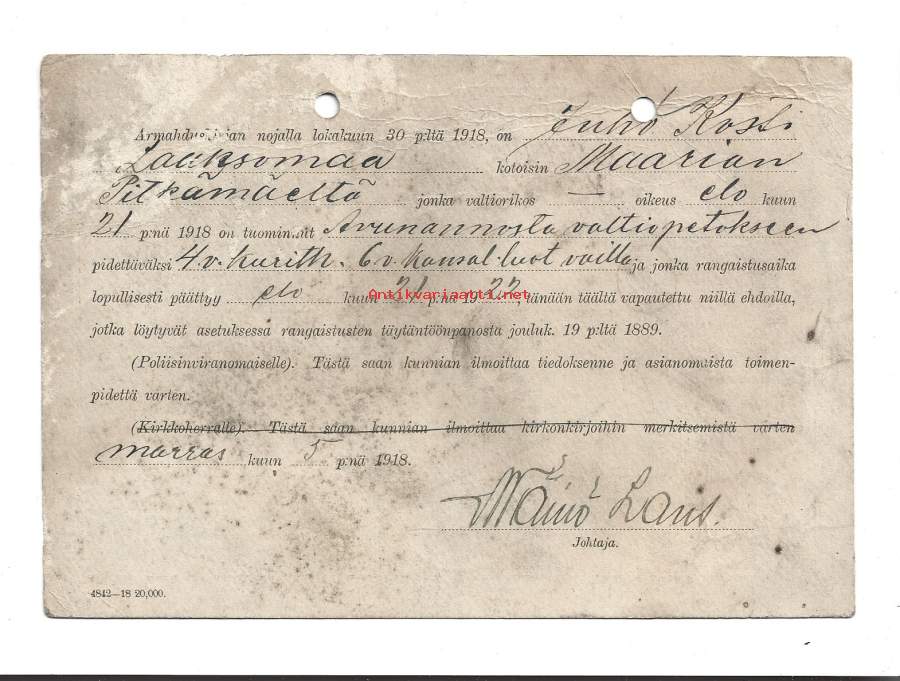 Armahdu jan nojalla lokakuun 30 p:ltä 1918, on Juho Kosti
Laaksomaa kotoisin Maarian
Pitkämäeltä jonka valtiorikos — oikeus elo kuun
21 p:nä 1918 on tuominnut Avunannosta valtiopetokseen
pidettäväksi 4 v. kurith. 6 v. kansal. luot vailla ja jonka rangaistusaika
lopullisesti päättyy elo kuun 21 p:nä 1922, tänään täältä vapautettu niillä ehdoilla,
Antikvariaatti.net
jotka löytyvät asetuksessa rangaistusten täytäntöönpanosta jouluk. 19 p:ltä 1889.
(Poliisinviranomaiselle). Tästä saan kunnian ilmoittaa tiedoksenne ja asianomaista toimen-
pidettä varten.
(Kirkkoherralle). Tästä saan kunnian ilmoittaa kirkonkirjoihin merkitsemistä varten
marras kuun 5 p:nä 1918.
Väinö
Johtaja.
4842—18 20,000.